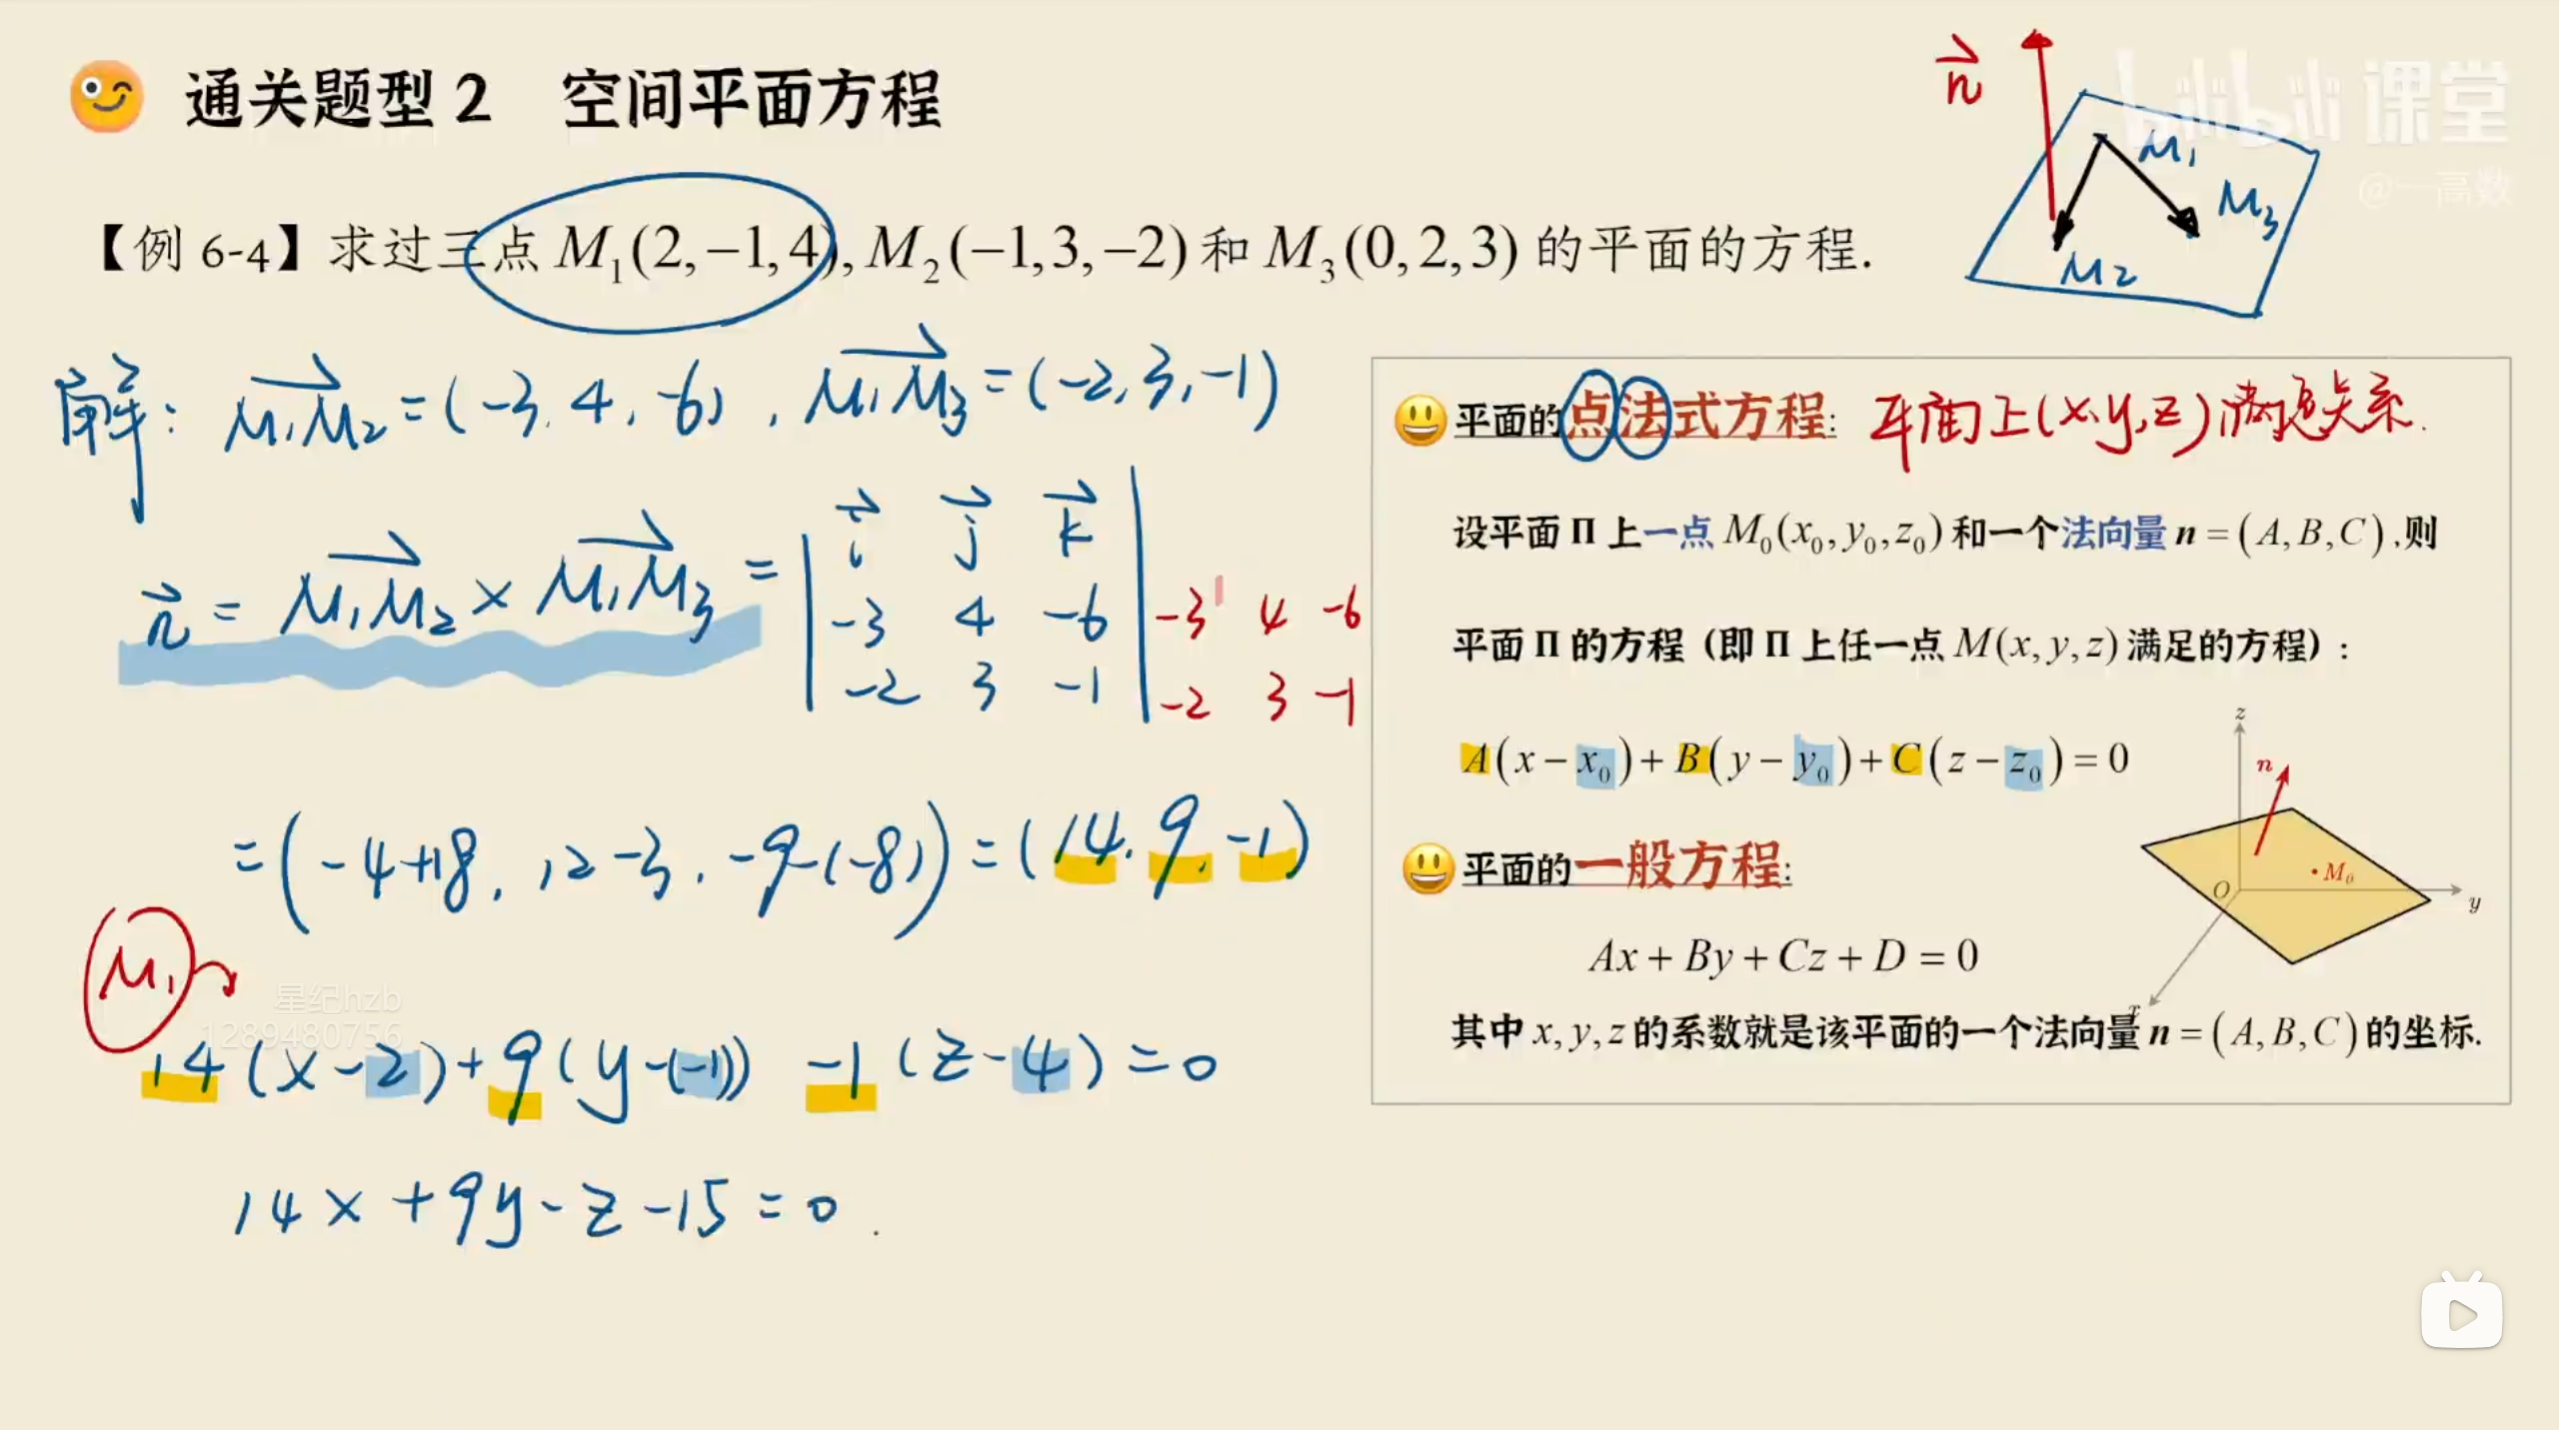 通关题型 2 空间平面方程
bilibili 课堂
@一高数
n
M₁
M₃
M₂
【例 6-4】求过三点 M₁(2,−1,4),M₂(−1,3,−2)和 M₃(0,2,3) 的平面的方程.
解: M₁M₂=(-3,4,-6), M₁M₃=(-2,3,-1)
n = M₁M₂×M₁M₃ = | i j k |
-3 4 -6 | -3 4 -6
-2 3 -1 | -2 3 -1
=(-4+18, 12-3, -9-(-8))=(14,9,-1)
M₁
星纪hzb
1289480756
14(x-2)+9(y-(-1)) -1(z-4)=0
14x+9y-z-15=0.
平面的点法式方程: 平面上(x,y,z)满足关系.
设平面 Π 上一点 M₀(x₀,y₀,z₀) 和一个法向量 n=(A,B,C),则
平面 Π 的方程（即 Π 上任一点 M(x,y,z) 满足的方程）:
A(x−x₀)+B(y−y₀)+C(z−z₀)=0
z
n
M₀
O
y
x
平面的一般方程:
Ax+By+Cz+D=0
其中 x,y,z 的系数就是该平面的一个法向量 n=(A,B,C) 的坐标.